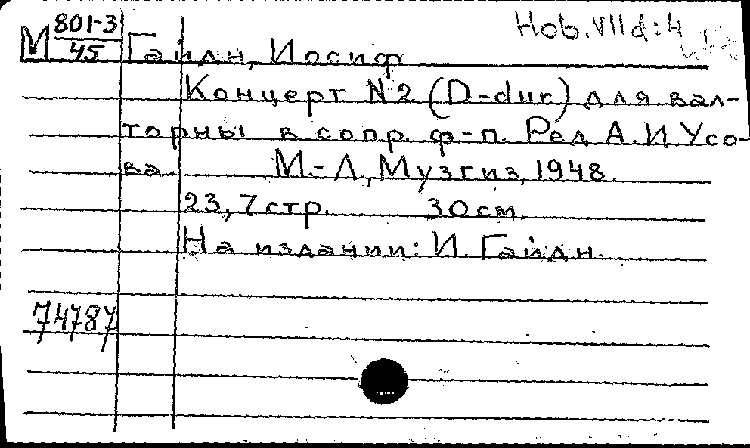 Hob. VIId:4
М 801-3/45 Гайдн, Иосиф
Концерт N2 (D-dur) для вал-
торны в сопр. ф-п. Ред. А. И. Усо-
ва. М-Л, Музгиз, 1948.
23, 7 стр. 30 см.
На издании: И. Гайдн.
74787